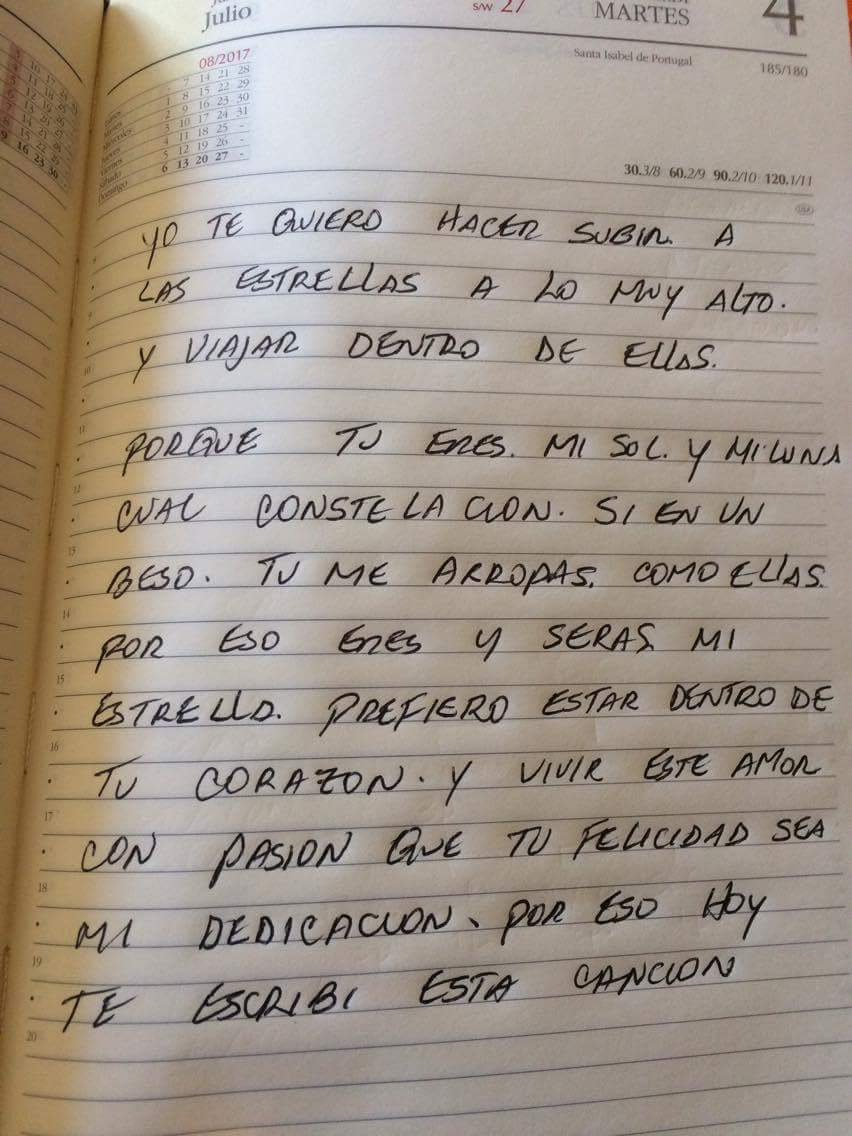 Julio
s/w 27
MARTES
4
08/2017
Santa Isabel de Portugal
185/180
7 14 21 28
1 8 15 22 29
2 9 16 23 30
3 10 17 24 31
4 11 18 25 -
5 12 19 26 -
Domingo 6 13 20 27 -
30.3/8 60.2/9 90.2/10 120.1/11
YO TE QUIERO HACER SUBIR. A
LAS ESTRELLAS A LO MUY ALTO.
Y VIAJAR DENTRO DE ELLAS.
PORQUE TU ERES. MI SOL. Y MI LUNA
CUAL CONSTELACION. SI EN UN
BESO. TU ME ARROPAS. COMO ELLAS.
POR ESO ERES Y SERAS MI
ESTRELLA. PREFIERO ESTAR DENTRO DE
TU CORAZON. Y VIVIR ESTE AMOR
CON PASION QUE TU FELICIDAD SEA
MI DEDICACION. POR ESO HOY
TE ESCRIBI ESTA CANCION
10
11
12
13
14
15
16
17
18
19
20